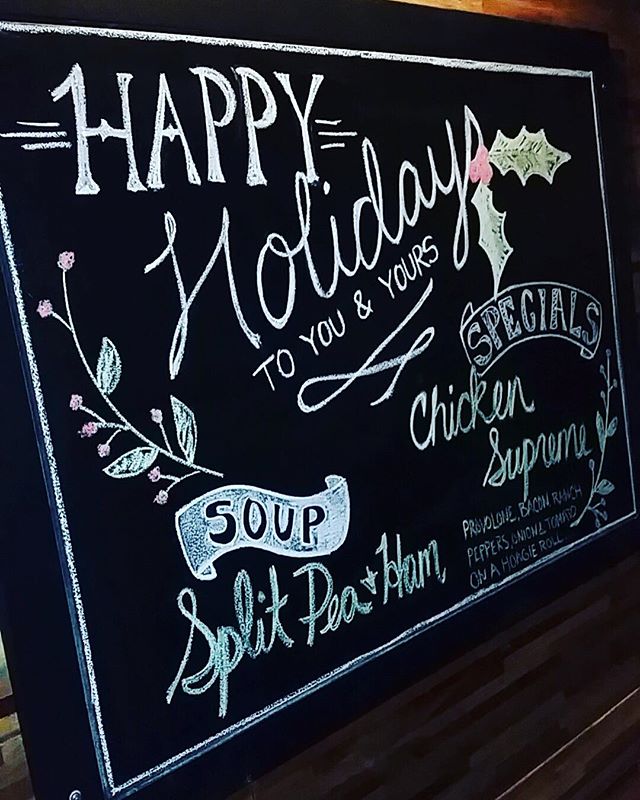 HAPPY
Holidays
TO YOU & YOURS
SPECIALS
Chicken
Supreme
PROVOLONE, BACON, RANCH
PEPPERS, ONION & TOMATO
ON A HOAGIE ROLL
SOUP
Split Pea + Ham